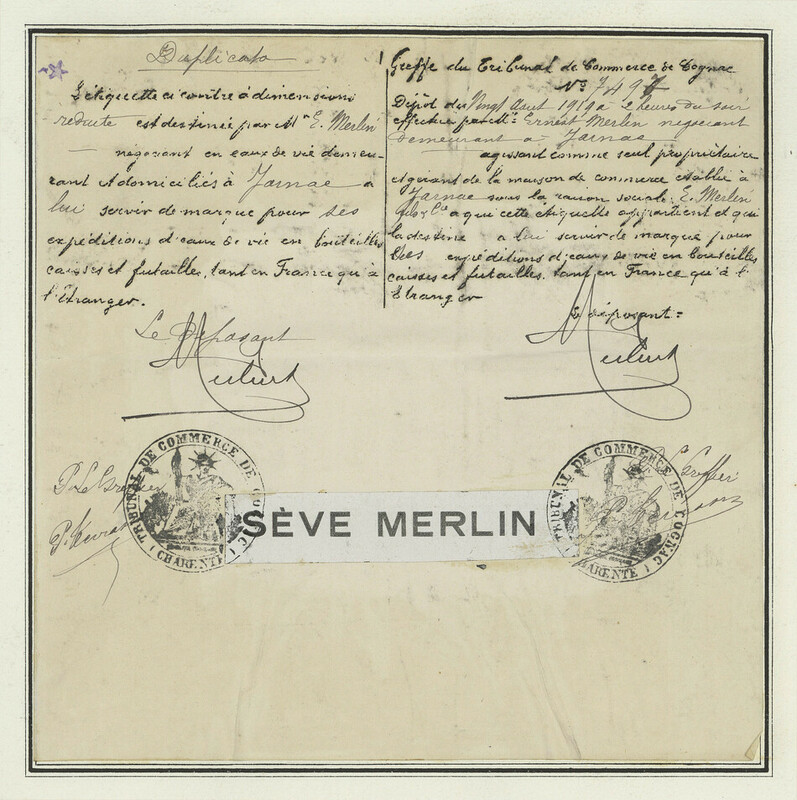 Duplicata
L'étiquette ci contre à dimensions
réduite est destinée par Mr E. Merlin
négociant en eaux de vie demeu-
rant & domiciliés à Jarnac à
lui servir de marque pour ses
expéditions d'eaux de vie en bouteilles
caisses et futailles, tant en France qu'à
l'étranger.
Le Déposant
Greffe du Tribunal de Commerce de Cognac
No 7497
Dépôt du Vingt Aout 1919 à 2 heures du soir
effectué par Mr Ernest Merlin négociant
demeurant à Jarnac
agissant comme seul propriétaire
et gérant de la maison de commerce établie à
Jarnac sous la raison sociale: E. Merlin
fils & Cie a qui cette étiquette appartient et qui
la destine à lui servir de marque pour
ses expéditions d'eaux de vie en bouteilles
caisses et futailles, tant en France qu'à l'
Etranger
Le déposant =
TRIBUNAL DE COMMERCE DE COGNAC
(CHARENTE)
SÈVE MERLIN
TRIBUNAL DE COMMERCE DE COGNAC
(CHARENTE)